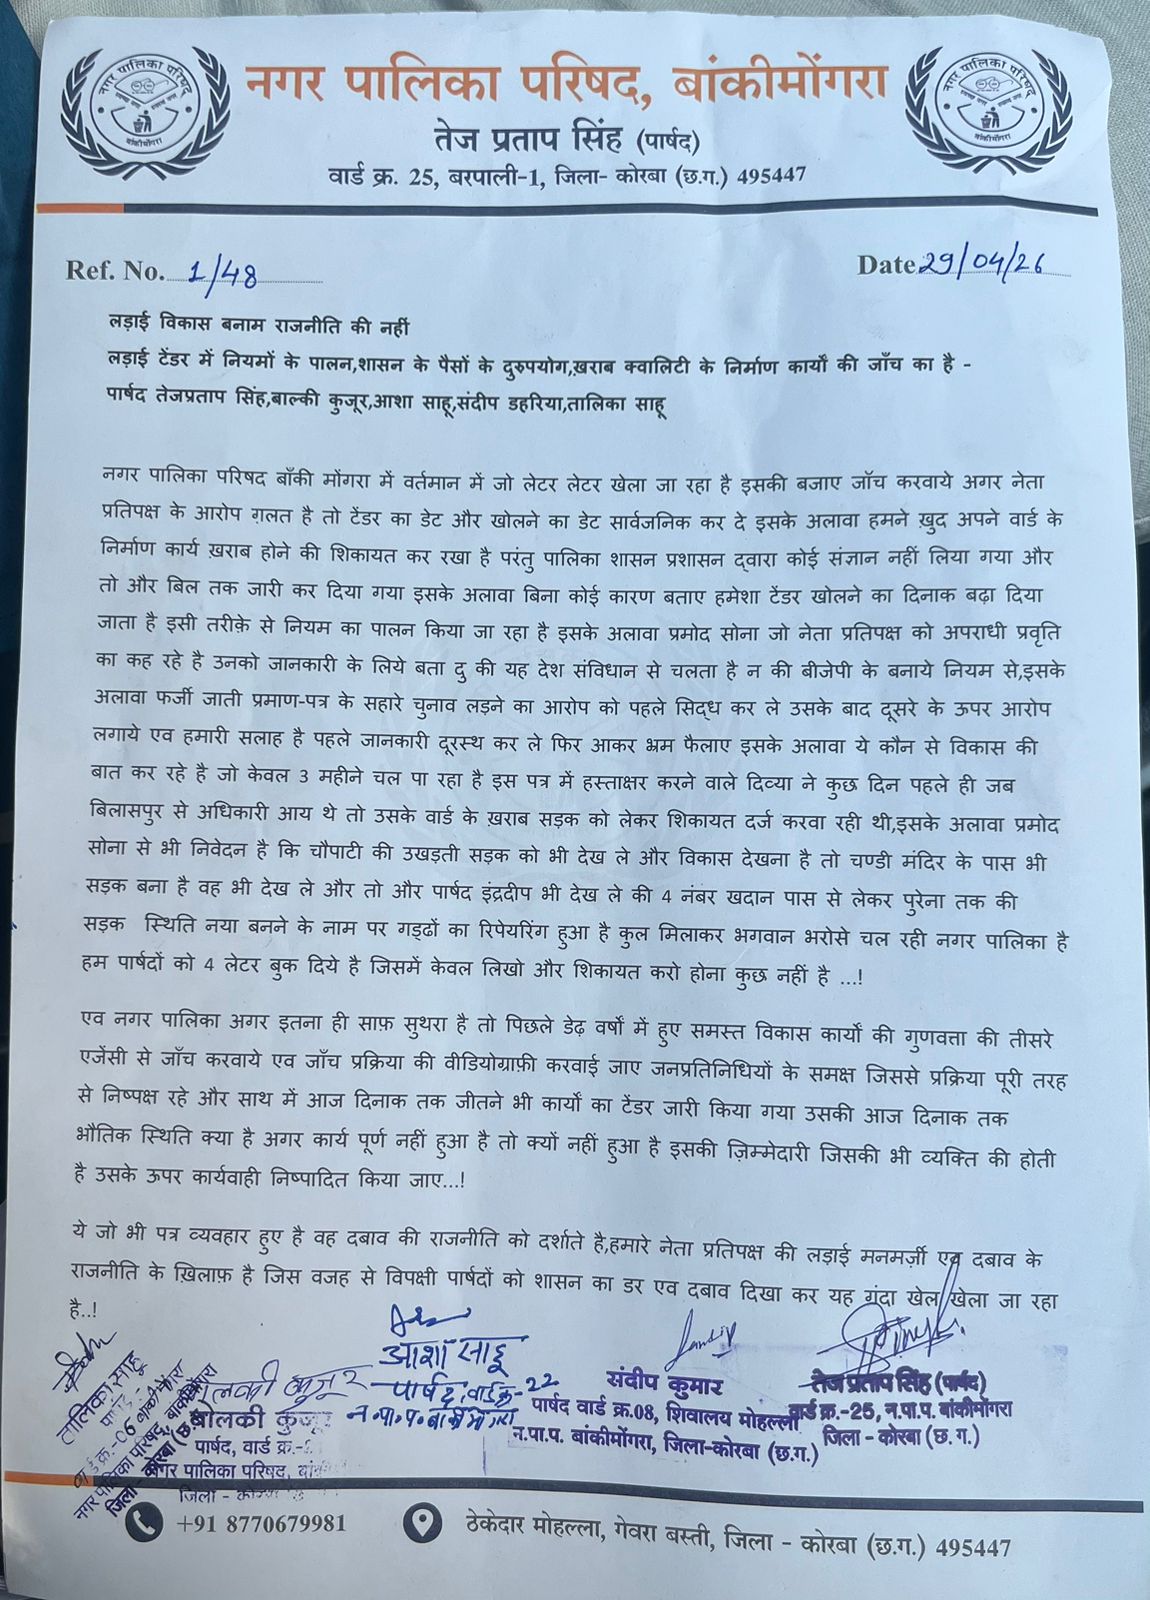 नगर पालिका परिषद, बांकीमोंगरा
तेज प्रताप सिंह (पार्षद)
वार्ड क्र. 25, बरपाली-1, जिला- कोरबा (छ.ग.) 495447
नगर पालिका परिषद
बांकीमोंगरा
नगर पालिका परिषद
बांकीमोंगरा
Ref. No. 1/48
Date 29/04/26
लड़ाई विकास बनाम राजनीति की नहीं
लड़ाई टेंडर में नियमों के पालन,शासन के पैसों के दुरुपयोग,ख़राब क्वालिटी के निर्माण कार्यों की जाँच का है -
पार्षद तेजप्रताप सिंह,बाल्की कुजूर,आशा साहू,संदीप डहरिया,तालिका साहू
नगर पालिका परिषद बाँकी मोंगरा में वर्तमान में जो लेटर लेटर खेला जा रहा है इसकी बजाए जाँच करवाये अगर नेता
प्रतिपक्ष के आरोप ग़लत है तो टेंडर का डेट और खोलने का डेट सार्वजनिक कर दे इसके अलावा हमने ख़ुद अपने वार्ड के
निर्माण कार्य ख़राब होने की शिकायत कर रखा है परंतु पालिका शासन प्रशासन द्वारा कोई संज्ञान नहीं लिया गया और
तो और बिल तक जारी कर दिया गया इसके अलावा बिना कोई कारण बताए हमेशा टेंडर खोलने का दिनाक बढ़ा दिया
जाता है इसी तरीक़े से नियम का पालन किया जा रहा है इसके अलावा प्रमोद सोना जो नेता प्रतिपक्ष को अपराधी प्रवृति
का कह रहे है उनको जानकारी के लिये बता दु की यह देश संविधान से चलता है न की बीजेपी के बनाये नियम से,इसके
अलावा फर्जी जाती प्रमाण-पत्र के सहारे चुनाव लड़ने का आरोप को पहले सिद्ध कर ले उसके बाद दूसरे के ऊपर आरोप
लगाये एव हमारी सलाह है पहले जानकारी दूरस्थ कर ले फिर आकर भ्रम फैलाए इसके अलावा ये कौन से विकास की
बात कर रहे है जो केवल 3 महीने चल पा रहा है इस पत्र में हस्ताक्षर करने वाले दिव्या ने कुछ दिन पहले ही जब
बिलासपुर से अधिकारी आय थे तो उसके वार्ड के ख़राब सड़क को लेकर शिकायत दर्ज करवा रही थी,इसके अलावा प्रमोद
सोना से भी निवेदन है कि चौपाटी की उखड़ती सड़क को भी देख ले और विकास देखना है तो चण्डी मंदिर के पास भी
सड़क बना है वह भी देख ले और तो और पार्षद इंद्रदीप भी देख ले की 4 नंबर खदान पास से लेकर पुरेना तक की
सड़क स्थिति नया बनने के नाम पर गड्ढों का रिपेयरिंग हुआ है कुल मिलाकर भगवान भरोसे चल रही नगर पालिका है
हम पार्षदों को 4 लेटर बुक दिये है जिसमें केवल लिखो और शिकायत करो होना कुछ नहीं है ...!
एव नगर पालिका अगर इतना ही साफ़ सुथरा है तो पिछले डेढ़ वर्षों में हुए समस्त विकास कार्यों की गुणवत्ता की तीसरे
एजेंसी से जाँच करवाये एव जाँच प्रक्रिया की वीडियोग्राफ़ी करवाई जाए जनप्रतिनिधियों के समक्ष जिससे प्रक्रिया पूरी तरह
से निष्पक्ष रहे और साथ में आज दिनाक तक जीतने भी कार्यों का टेंडर जारी किया गया उसकी आज दिनाक तक
भौतिक स्थिति क्या है अगर कार्य पूर्ण नहीं हुआ है तो क्यों नहीं हुआ है इसकी ज़िम्मेदारी जिसकी भी व्यक्ति की होती
है उसके ऊपर कार्यवाही निष्पादित किया जाए...!
ये जो भी पत्र व्यवहार हुए है वह दबाव की राजनीति को दर्शाते है,हमारे नेता प्रतिपक्ष की लड़ाई मनमर्ज़ी एव दबाव के
राजनीति के ख़िलाफ़ है जिस वजह से विपक्षी पार्षदों को शासन का डर एव दबाव दिखा कर यह गंदा खेल खेला जा रहा
है..!
तालिका साहू
वार्ड क्र.-06 बांकीमोंगरा
नगर पालिका परिषद, बांकीमोंगरा
जिला - कोरबा (छ.ग.)
बालकी कुजूर
बालकी कुजूर
पार्षद, वार्ड क्र.-
नगर पालिका परिषद,
जिला -
आशा साहू
पार्षद, वार्ड क्र-22
न.पा.प. बांकीमोंगरा
संदीप कुमार
पार्षद वार्ड क्र.08, शिवालय मोहल्ला
न.पा.प. बांकीमोंगरा, जिला-कोरबा (छ.ग.)
तेज प्रताप सिंह (पार्षद)
वार्ड क्र.-25, न.पा.प. बांकीमोंगरा
जिला - कोरबा (छ. ग.)
+91 8770679981
ठेकेदार मोहल्ला, गेवरा बस्ती, जिला - कोरबा (छ.ग.) 495447